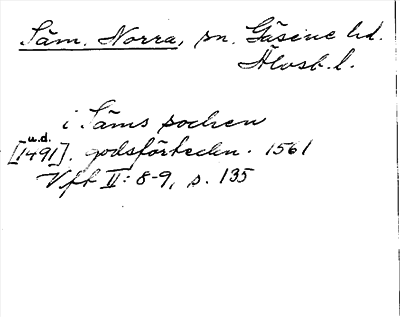 Säm. Norra, sn. Gäsene hd.
Älvsb. l.
i Säms socken
u.d.
[1491]. godsförteckn. 1561
Vft II: 8-9, s. 135